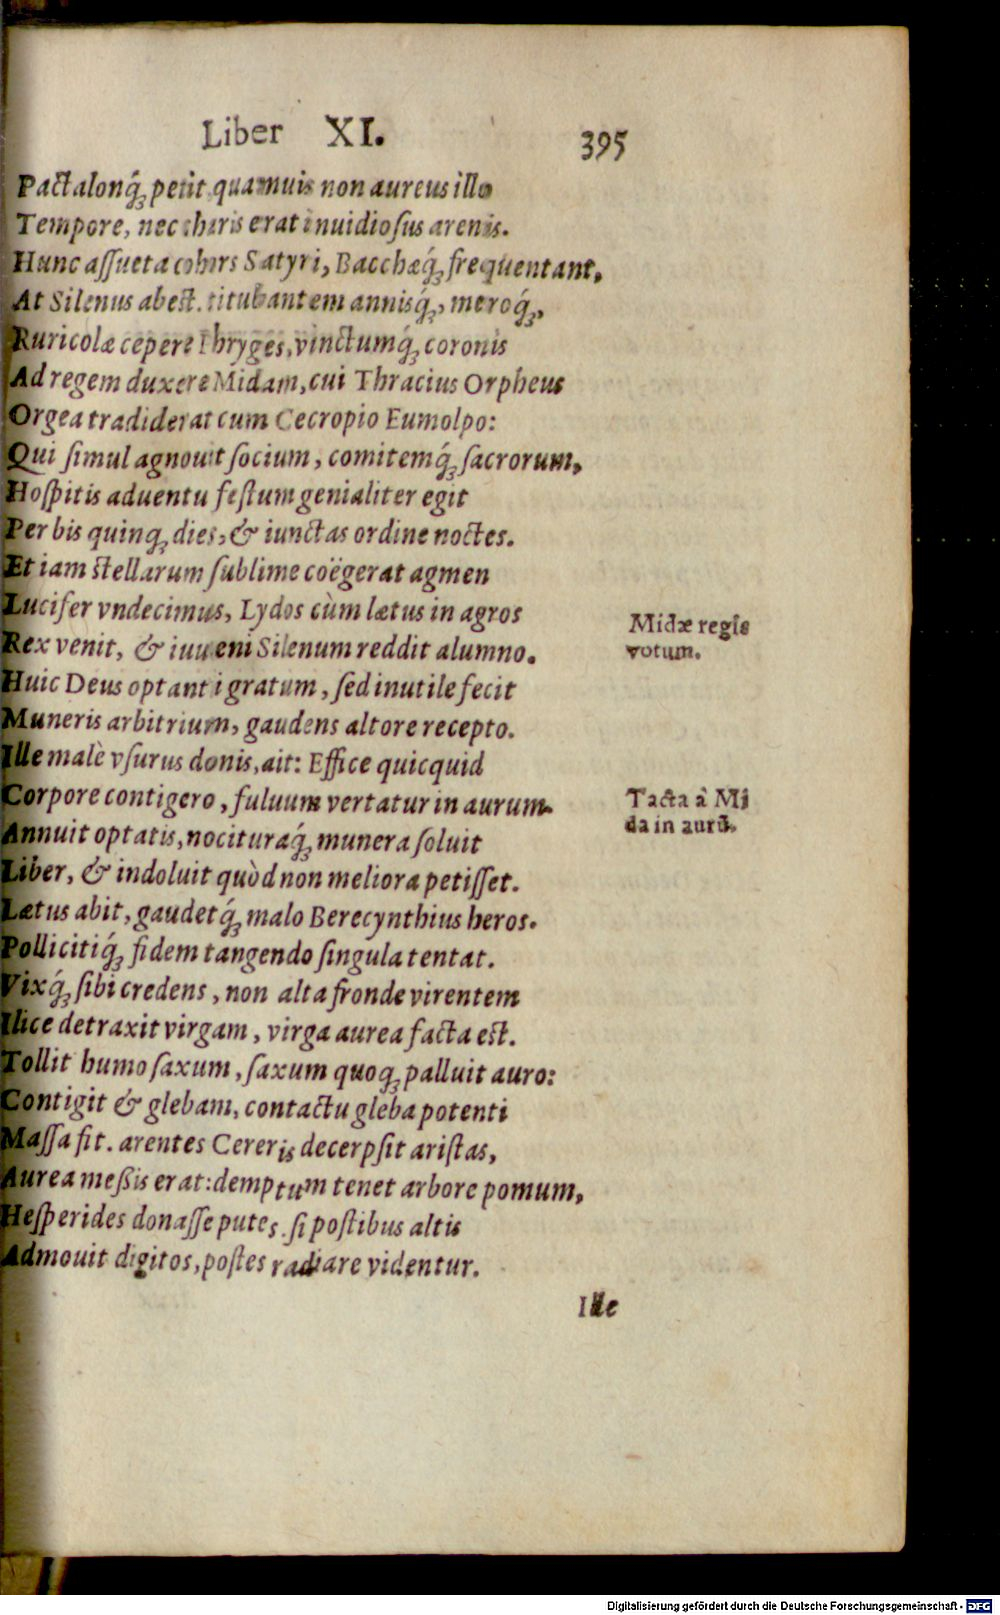 Liber XI. 395
Pactalonq́ꝫ petit quamuis non aureus illo
Tempore, nec charis erat inuidioſus arenis.
Hunc aſſueta cohors Satyri, Bacchæq́ꝫ frequentant,
At Silenus abest. titubantem annisq́ꝫ, meroq́ꝫ,
Ruricolæ cepere Phryges, vinctumq́ꝫ coronis
Ad regem duxere Midam, cui Thracius Orpheus
Orgea tradiderat cum Cecropio Eumolpo:
Qui ſimul agnouit ſocium, comitemq́ꝫ ſacrorum,
Hoſpitis aduentu feſtum genialiter egit
Per bis quinqꝫ dies, & iunctas ordine noctes.
Et iam stellarum ſublime coëgerat agmen
Lucifer vndecimus, Lydos cùm lætus in agros
Rex venit, & iuueni Silenum reddit alumno.
Midæ regis
votum.
Huic Deus optanti gratum, ſed inutile fecit
Muneris arbitrium, gaudens altore recepto.
Ille malè vſurus donis, ait: Effice quicquid
Corpore contigero, fuluum vertatur in aurum.
Tacta à Mi
da in aurū.
Annuit optatis, nocituraq́ꝫ munera ſoluit
Liber, & indoluit quòd non meliora petiſſet.
Lætus abit, gaudetq́ꝫ malo Berecynthius heros.
Pollicitiq́ꝫ fidem tangendo ſingula tentat.
Vixq́ꝫ ſibi credens, non alta fronde virentem
Ilice detraxit virgam, virga aurea facta est.
Tollit humo ſaxum, ſaxum quoqꝫ palluit auro:
Contigit & glebam, contactu gleba potenti
Maſſa fit. arentes Cereris decerpſit ariſtas,
Aurea meßis erat: demptum tenet arbore pomum,
Heſperides donaſſe putes. ſi poſtibus altis
Admouit digitos, poſtes radiare videntur.
Ille
Digitalisierung gefördert durch die Deutsche Forschungsgemeinschaft - DFG